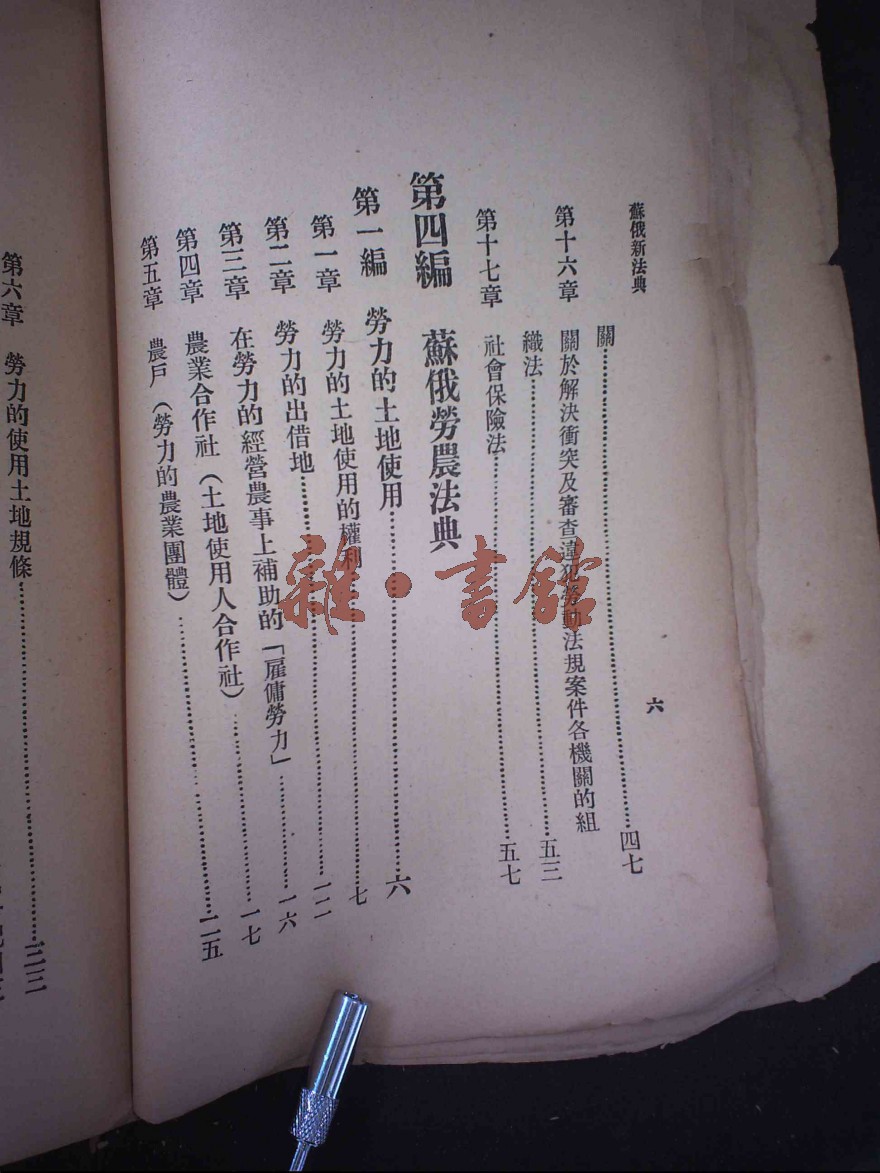 蘇俄新法典
六
關……四七
第十六章 關於解決衝突及審查違犯勞動法規案件各機關的組
織法……五三
第十七章 社會保險法……五七
第四編 蘇俄勞農法典
第一編 勞力的土地使用……六
第一章 勞力的土地使用的權利……七
第二章 勞力的出借地……一二
第三章 在勞力的經營農事上補助的「雇傭勞力」……一六
第四章 農業合作社（土地使用人合作社）……一七
第五章 農戶（勞力的農業團體）……二五
第六章 勞力的使用土地規條……三三
雜·書館